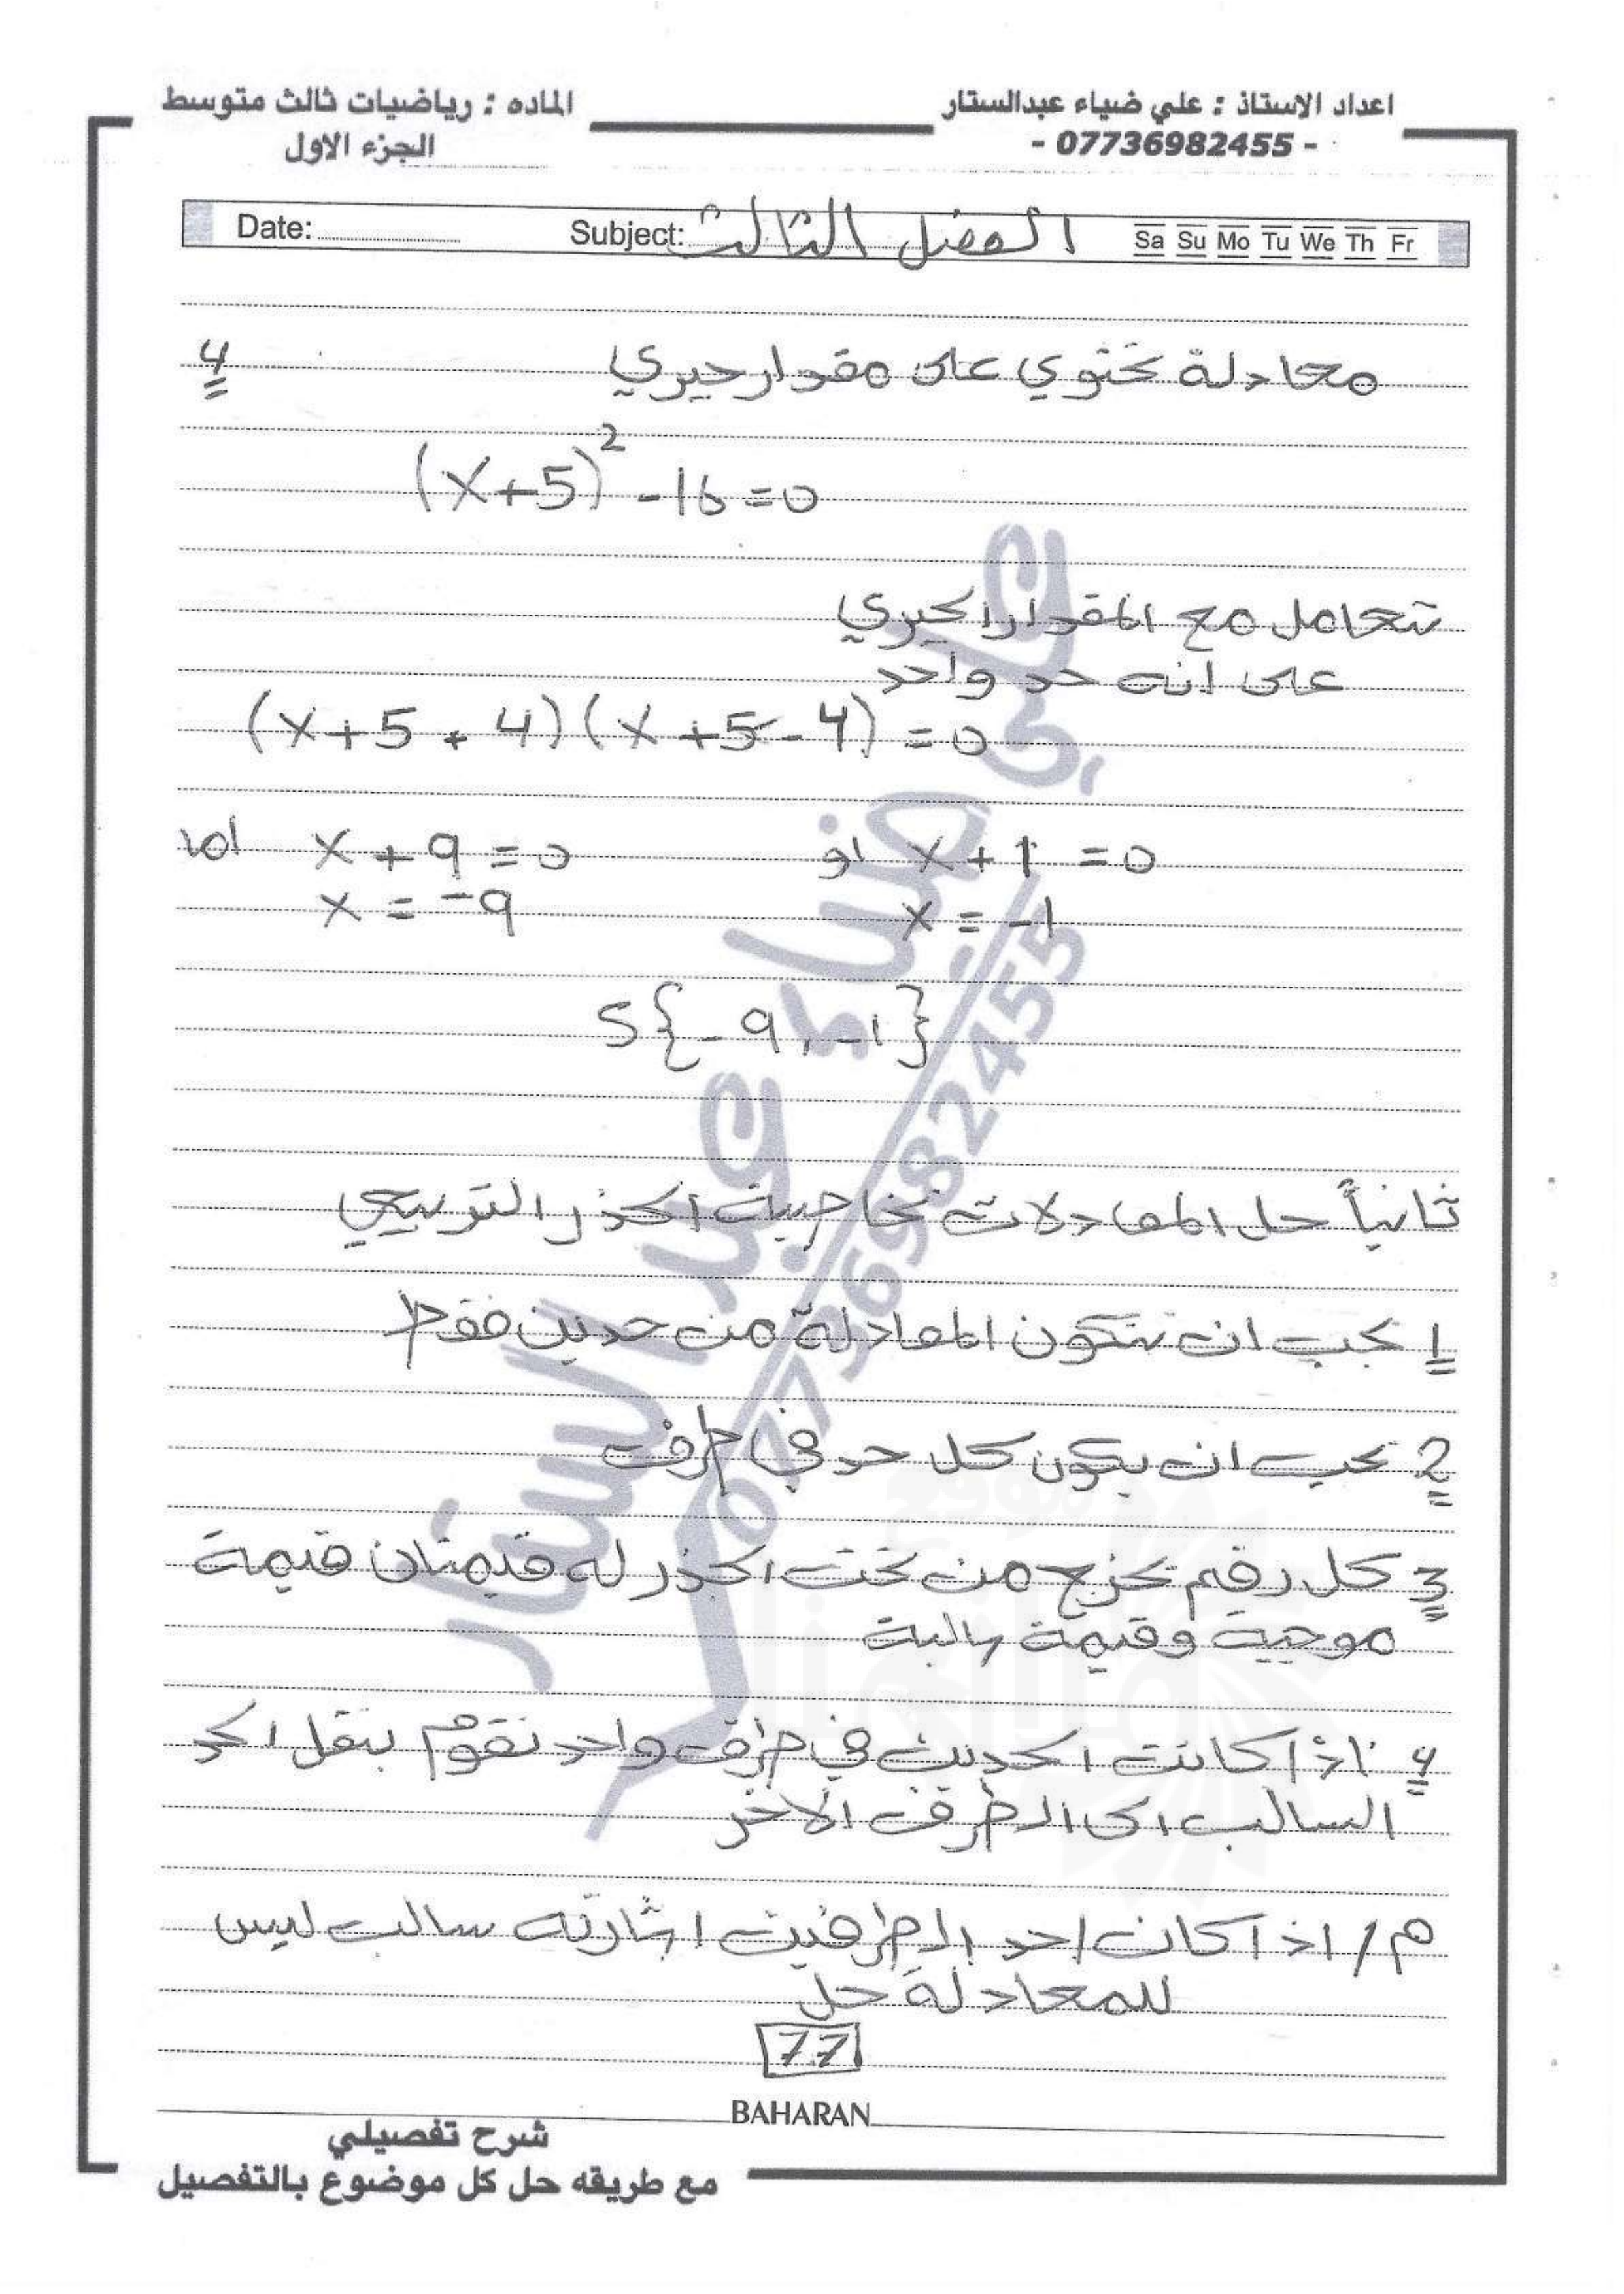 اعداد الاستاذ : علي ضياء عبدالستار
- 07736982455 -
الماده : رياضيات ثالث متوسط
الجزء الاول
Date: Subject: الفصل الثالث Sa Su Mo Tu We Th Fr
معادلة تحتوي على مقدار جبري 4
(x+5)² - 16 = 0
تتعامل مع المقدار الجبري
على انه حد واحد
(x+5+4)(x+5-4) = 0
اما x+9=0 او x+1=0
x = -9 x = -1
S{-9, -1}
ثانياً حل المعادلات بخاصية الجذر التربيعي
1 يجب ان تتكون المعادلة من حدين فقط
2 يجب ان يكون كل حد في طرف
3 كل رقم يخرج من تحت الجذر له قيمتان قيمة
موجبة وقيمة سالبة
4 اذا كانت الحدين في طرف واحد نقوم بنقل الحد
السالب الى الطرف الاخر
م/ اذا كان احد الطرفين اشارته سالب ليس
للمعادلة حل
77
BAHARAN
شرح تفصيلي
مع طريقه حل كل موضوع بالتفصيل
علي ضياء عبد الستار
07736982455